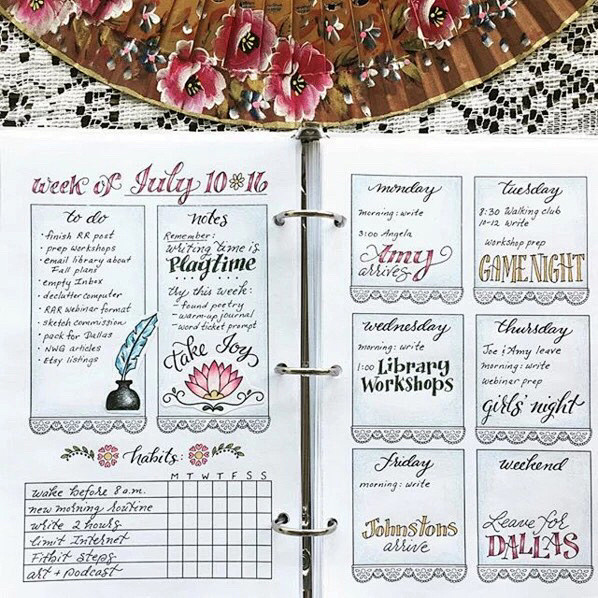 week of July 10 16
to do
• finish RR post
• prep workshops
• email library about
Fall plans
• empty Inbox
• declutter computer
• RAR webinar format
• sketch commission
• pack for Dallas
• NWG articles
• Etsy listings
notes
Remember:
writing time is
Playtime
try this week:
- found poetry
- warm-up journal
- word ticket prompt
Take Joy
habits:
M T W T F S S
wake before 8 a.m.
new morning routine
write 2 hours
limit Internet
Fitbit steps
art + podcast
monday
morning: write
3:00 Angela
Amy
arrives
tuesday
8:30 Walking club
10-12 write
workshop prep
GAME NIGHT
wednesday
morning: write
1:00 Library
Workshops
thursday
Joe & Amy leave
morning: write
webinar prep
girls' night
friday
morning: write
Johnstons
arrive
weekend
Leave for
DALLAS